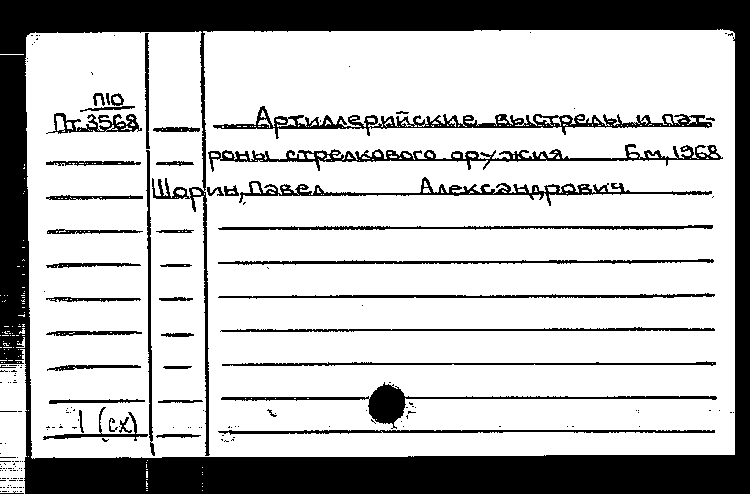 П10
Пт.3568 Артиллерийские выстрелы и пат-
роны стрелкового оружия. Б.м, 1968
Шорин, Павел Александрович.
1 (сх)